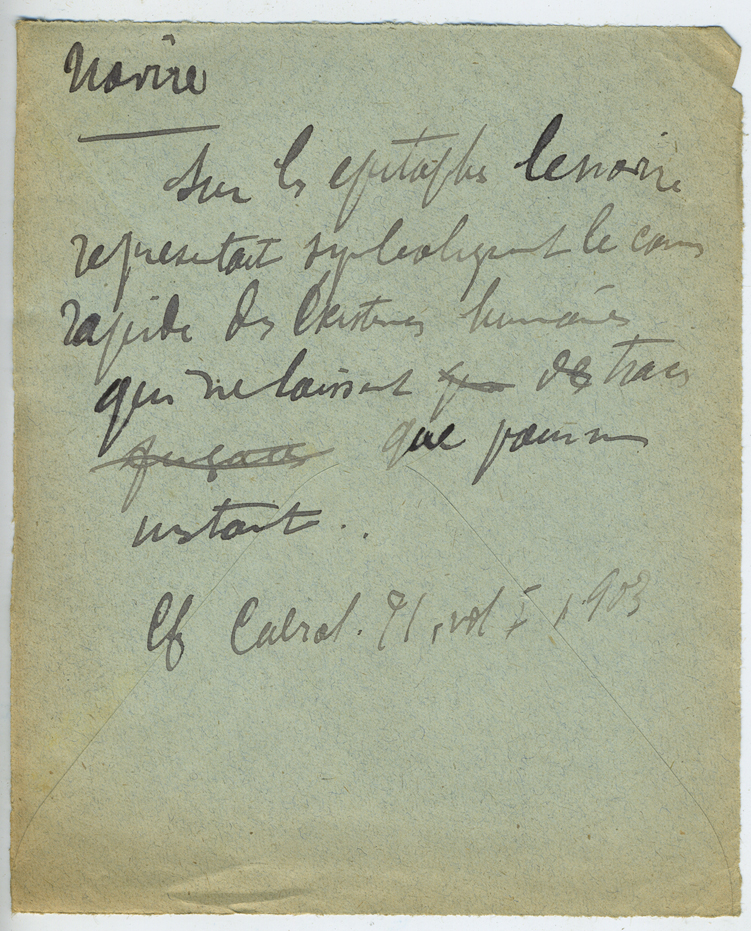 Navire
Sur les epitaphes le navire
representait symboliquement le cours
rapide des existences humaines
qui ne laissent que des traces
fugaces que pour un
instant..
Cf Cabrol. , vol I, 903